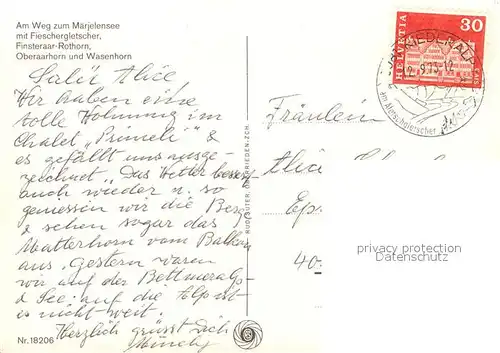 Am Weg zum Märjelensee
mit Fieschergletscher,
Finsteraar-Rothorn,
Oberaarhorn und Wasenhorn
Salü Alice,
Wir haben eine
tolle Wohnung im
Chalet "Primeli" &
es gefällt uns ausge-
zeichnet. Das Wetter
auch wieder u. so
geniessen wir die
& sehen sogar das
Matterhorn vom Balkon
aus. Gestern waren
wir auf der Bettmeralp
& See: auf die Alp ist
es nicht weit.
Herzlich grüsst Dich
Nr. 18206
RUD. SUTER, OBERRIEDEN-ZCH.
HELVETIA
30
RIEDERALP
am
Aletschgletscher
Fräulein
Alice
40
privacy protection
Datenschutz